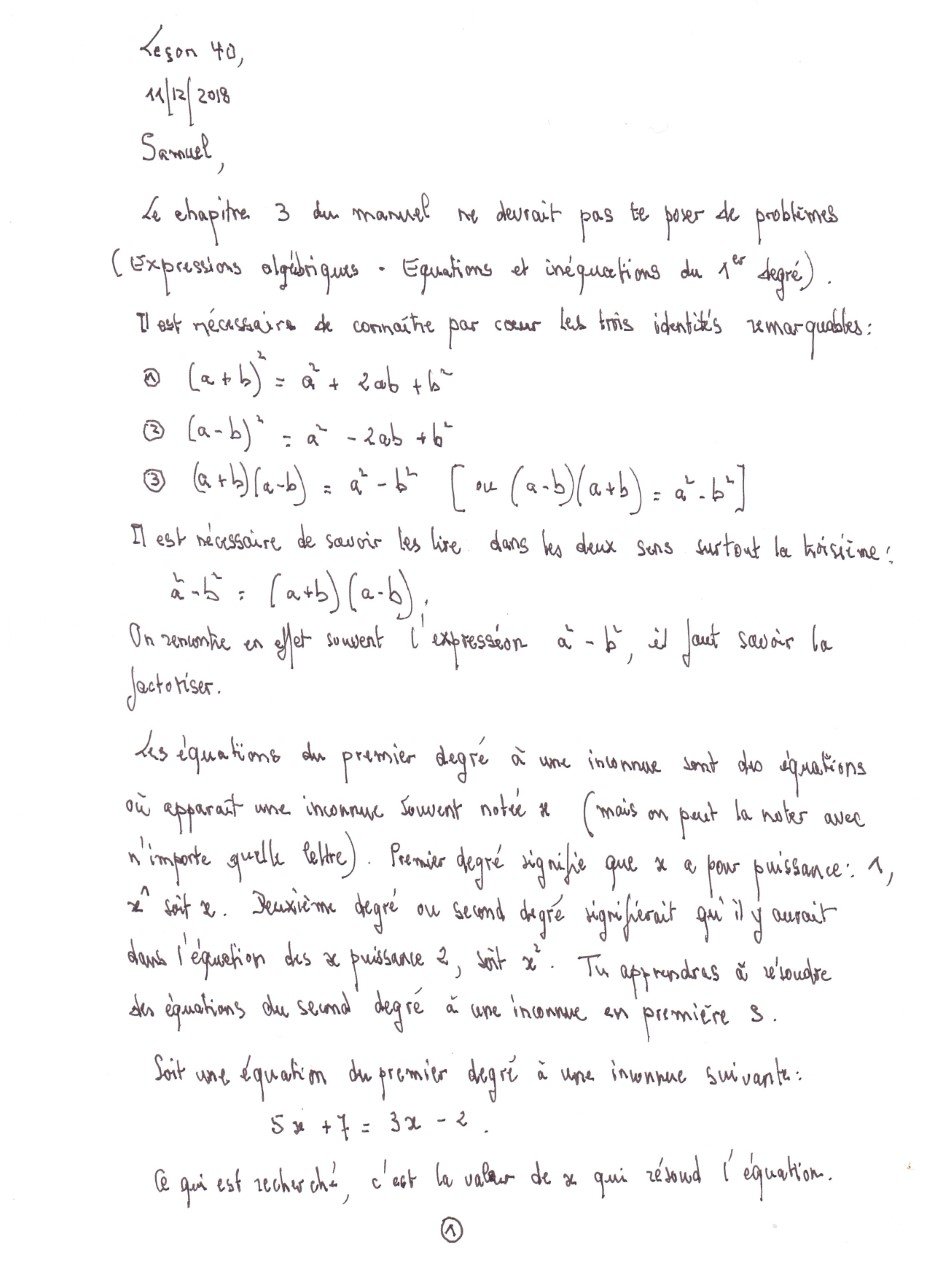 Leçon 40,
11/12/2018
Samuel,
Le chapitre 3 du manuel ne devrait pas te poser de problèmes
(Expressions algébriques - Equations et inéquations du 1er degré).
Il est nécessaire de connaître par cœur les trois identités remarquables :
① (a+b)² = a² + 2ab + b²
② (a-b)² = a² - 2ab + b²
③ (a+b)(a-b) = a² - b² [ou (a-b)(a+b) = a² - b²]
Il est nécessaire de savoir les lire dans les deux sens surtout la troisième :
a² - b² = (a+b)(a-b).
On rencontre en effet souvent l'expression a² - b², il faut savoir la
factoriser.
Les équations du premier degré à une inconnue sont des équations
où apparaît une inconnue souvent notée x (mais on peut la noter avec
n'importe quelle lettre). Premier degré signifie que x a pour puissance : 1,
x¹ soit x. Deuxième degré ou second degré signifierait qu'il y aurait
dans l'équation des x puissance 2, soit x². Tu apprendras à résoudre
des équations du second degré à une inconnue en première S.
Soit une équation du premier degré à une inconnue suivante :
5x + 7 = 3x - 2.
Ce qui est recherché, c'est la valeur de x qui résoud l'équation.
①